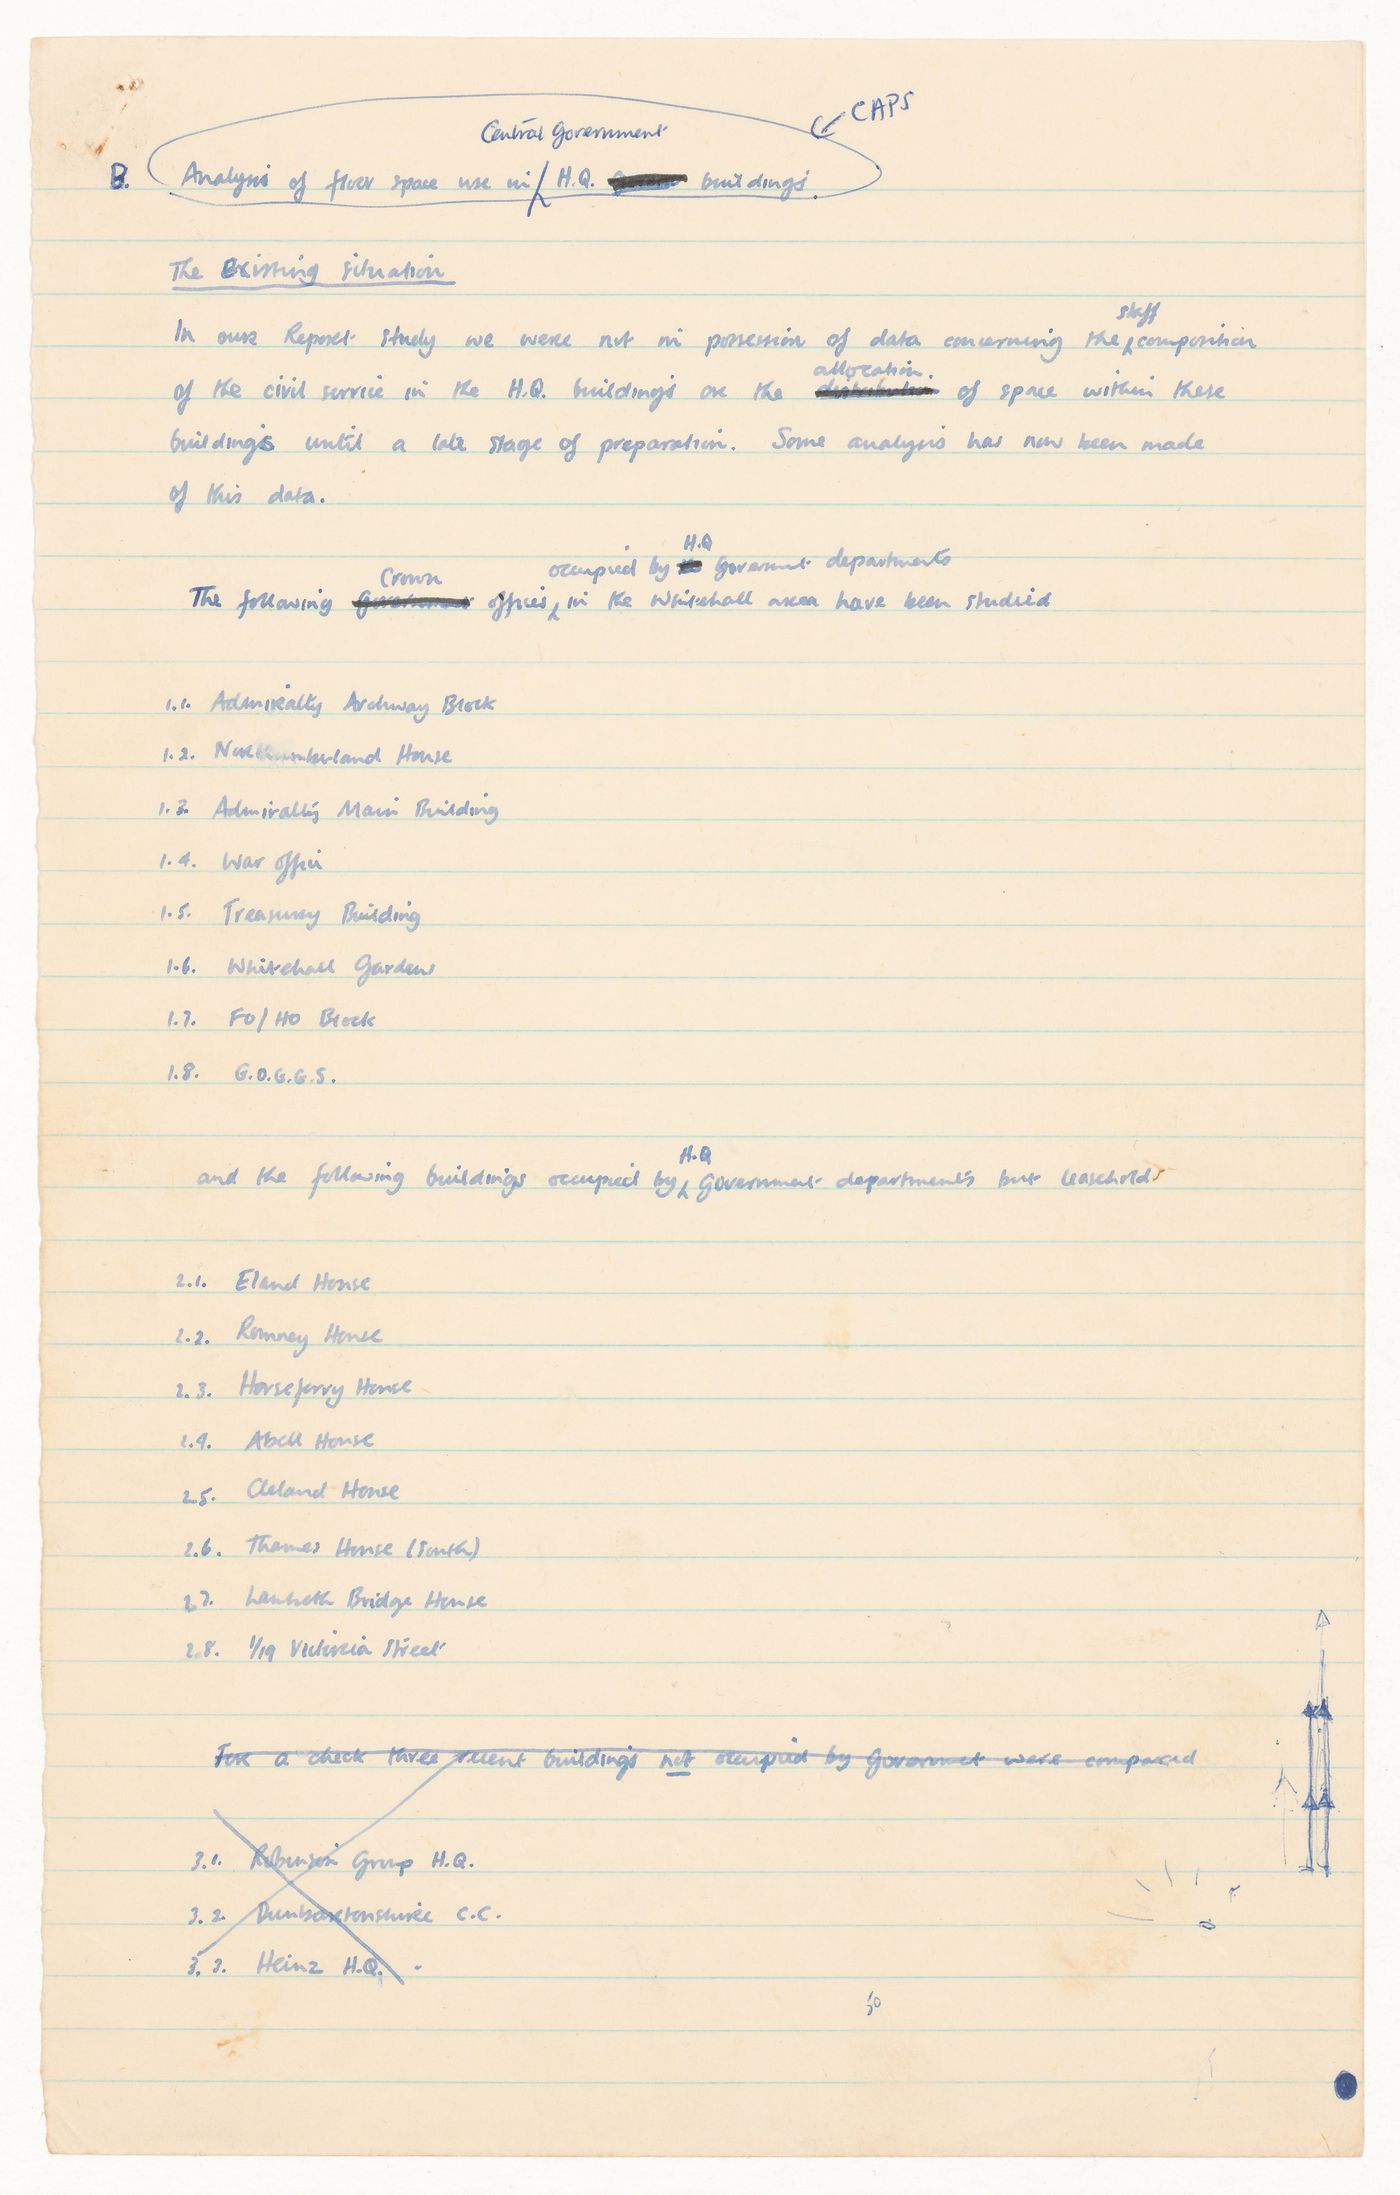 CAPS
Central Government
B. Analysis of floor space use in H.Q. buildings.
The Existing situation
staff
In our Report study we were not in possession of data concerning the composition
allocation.
of the civil service in the H.Q. buildings or the distribution of space within these
buildings until a late stage of preparation. Some analysis has now been made
of this data.
H.Q
occupied by Goverment departments
Crown
The following Government offices in the Whitehall area have been studied
1.1. Admiralty Archway Block
1.2. Northumberland House
1.3. Admiralty Main Building
1.4. War office
1.5. Treasury Building
1.6. Whitehall Gardens
1.7. FO/HO Block
1.8. G.O.G.G.S.
H.Q
and the following buildings occupied by Government departments but leasehold
2.1. Eland House
2.2. Romney House
2.3. Horseferry House
2.4. Abell House
2.5. Cleland House
2.6. Thames House (South)
2.7. Lambeth Bridge House
2.8. 1/19 Victoria Street
For a check three recent buildings not occupied by Goverment were compared
3.1. Robinson Group H.Q.
3.2. Dunbartonshire C.C.
3.3. Heinz H.Q.